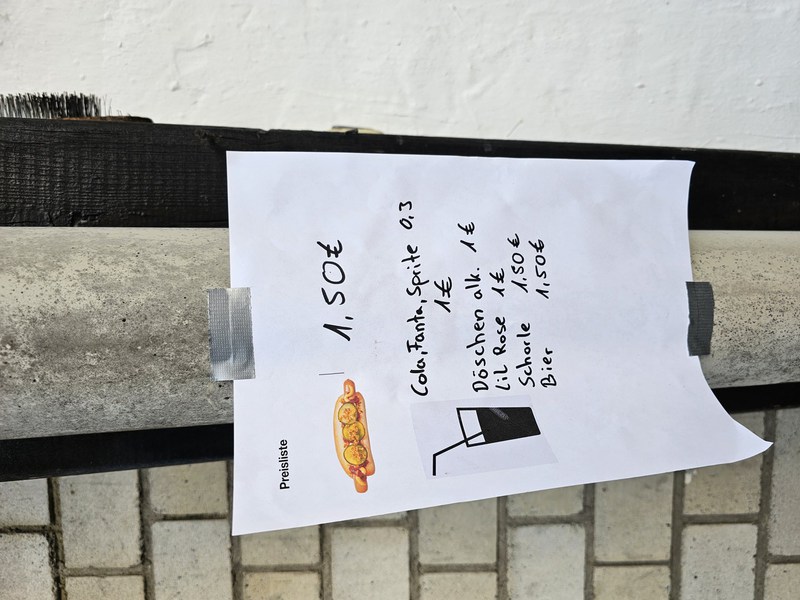 Preisliste
1,50€
Cola, Fanta, Sprite 0,3
1€
Döschen alk. 1€
Lil Rose 1€
Schorle 1,50€
Bier 1,50€